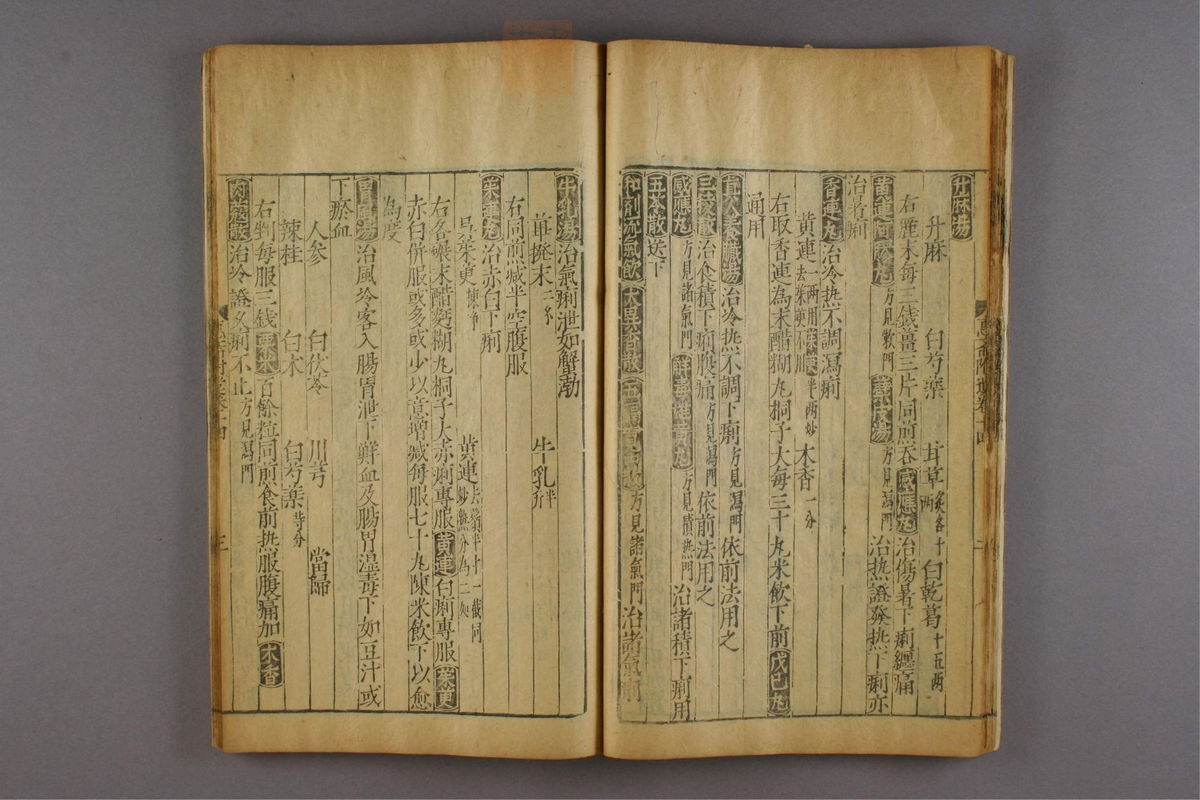 升麻湯
升麻　白芍藥　甘草炙各十兩　白乾葛十五兩
右麤末每三錢薑三片同煎吞感應丸治傷暑下痢纏痛
黃連阿膠丸方見嗽門　薷茯湯方見瀉門治熱證發熱下痢亦
治暑痢
香連丸治冷熱不調瀉痢
黃連一兩用茱萸半兩炒去茱萸不用　木香一分
右取香連為末醋糊丸桐子大每三十丸米飲下前戊己丸
通用
真人養臟湯治冷熱不調下痢方見瀉門依前法用之
三稜散治食積下痢腹痛方見瀉門依前法用之
感應丸方見諸氣門　解毒雄黃丸方見積熱門治諸積下痢用
五苓散送下
和劑流氣飲　木香散　方見諸氣門治諸氣痢
牛乳湯治氣痢泄如蟹渤
蓽撥末二錢　牛乳半升
右同前減半空腹服
茱連丸治赤白下痢
吳茱萸揀淨　黃連
右各碾末醋麪糊丸桐子大赤痢專服黃連白痢專服茱萸
赤白併服或多或少以意增減每服七十丸陳米飲下以愈
為度
胃風湯治風冷客入腸胃泄下鮮血及腸胃濕毒下如豆汁或
下瘀血
人參　白茯苓　川芎　當歸
辣桂　白朮　白芍藥等分
右剉每服三錢粟米百餘粒同煎食前熱服腹痛加木香
肉蔻散治冷證久痢不止方見瀉門